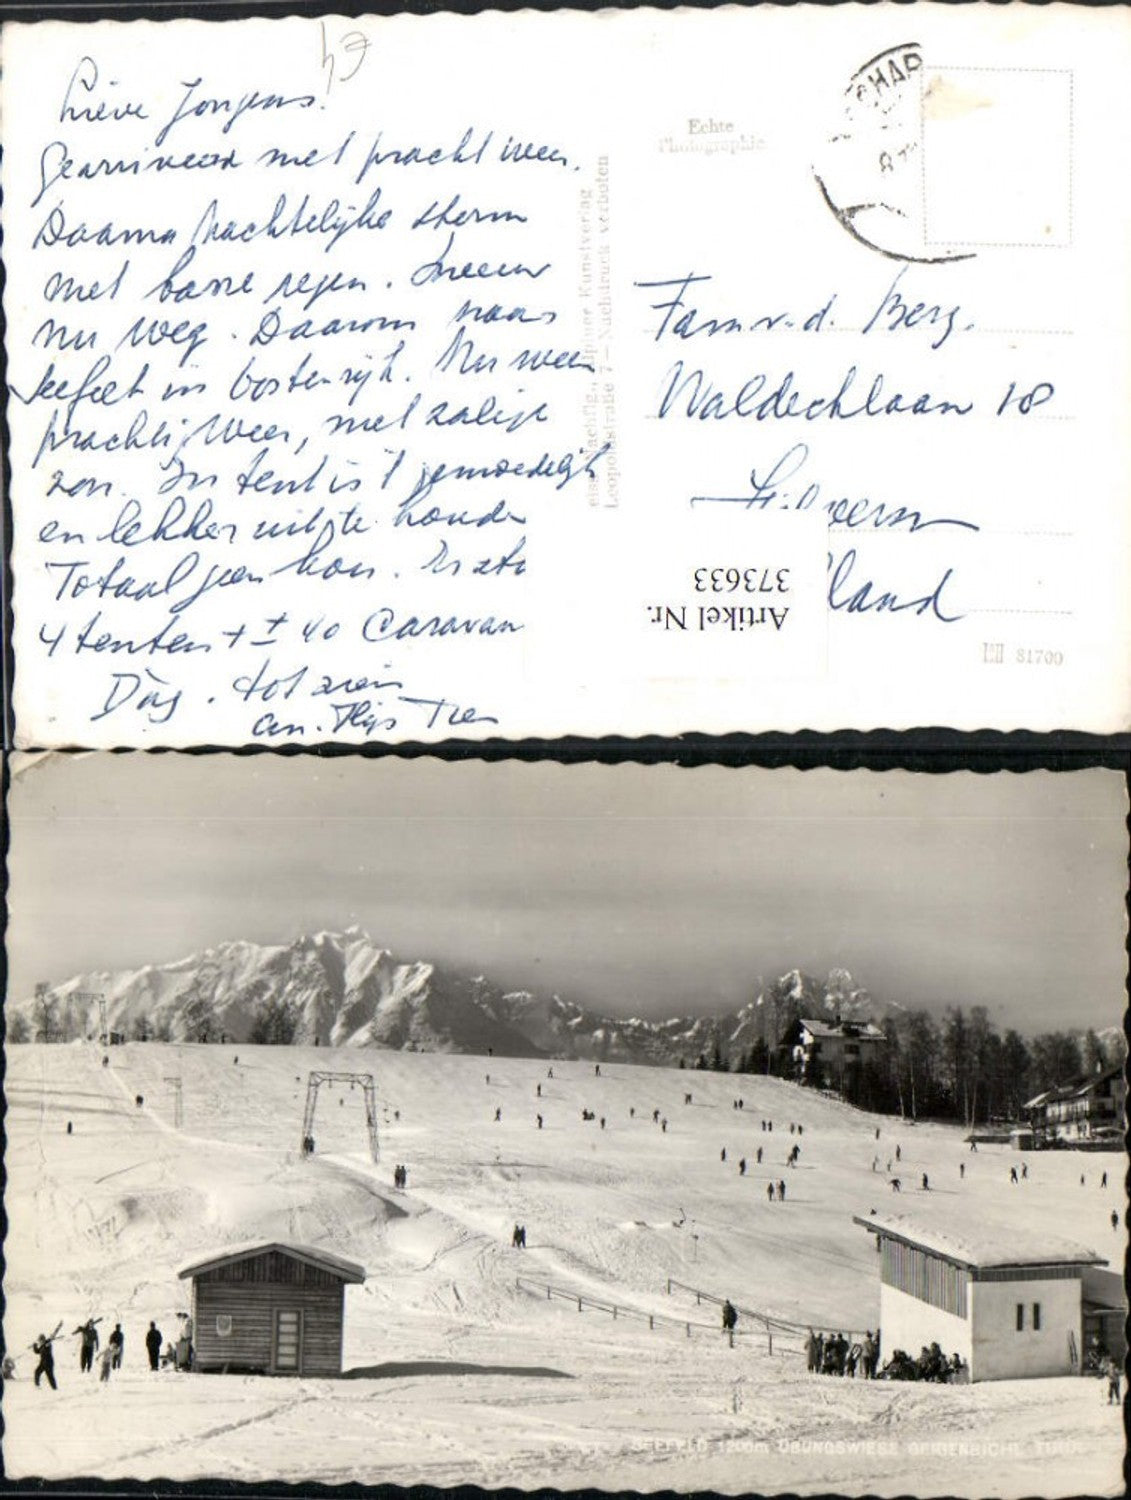 Lieve Jongens!
Gearriveerd met pracht weer.
Daarna nachtelijke storm
met barre regen. Sneeuw
nu weg. Daarom naar
Seefeld in Oostenrijk. Nu weer
prachtig weer, met zalige
zon. In tent is 't gemoedelijk
en lekker uit te houden
Totaal geen kou. Er staan
4 tenten + ± 40 Caravan
Dag. tot ziens
an. Thijs
€4
Echte
Photographie
Alpiner Kunstverlag
Leopoldstraße 7 — Nachdruck verboten
Fam. v. d. Berg.
Waldecklaan 18
land
Artikel Nr.
373633
81700
SEEFELD 1200m ÜBUNGSWIESE GEIGENBICHL TIROL